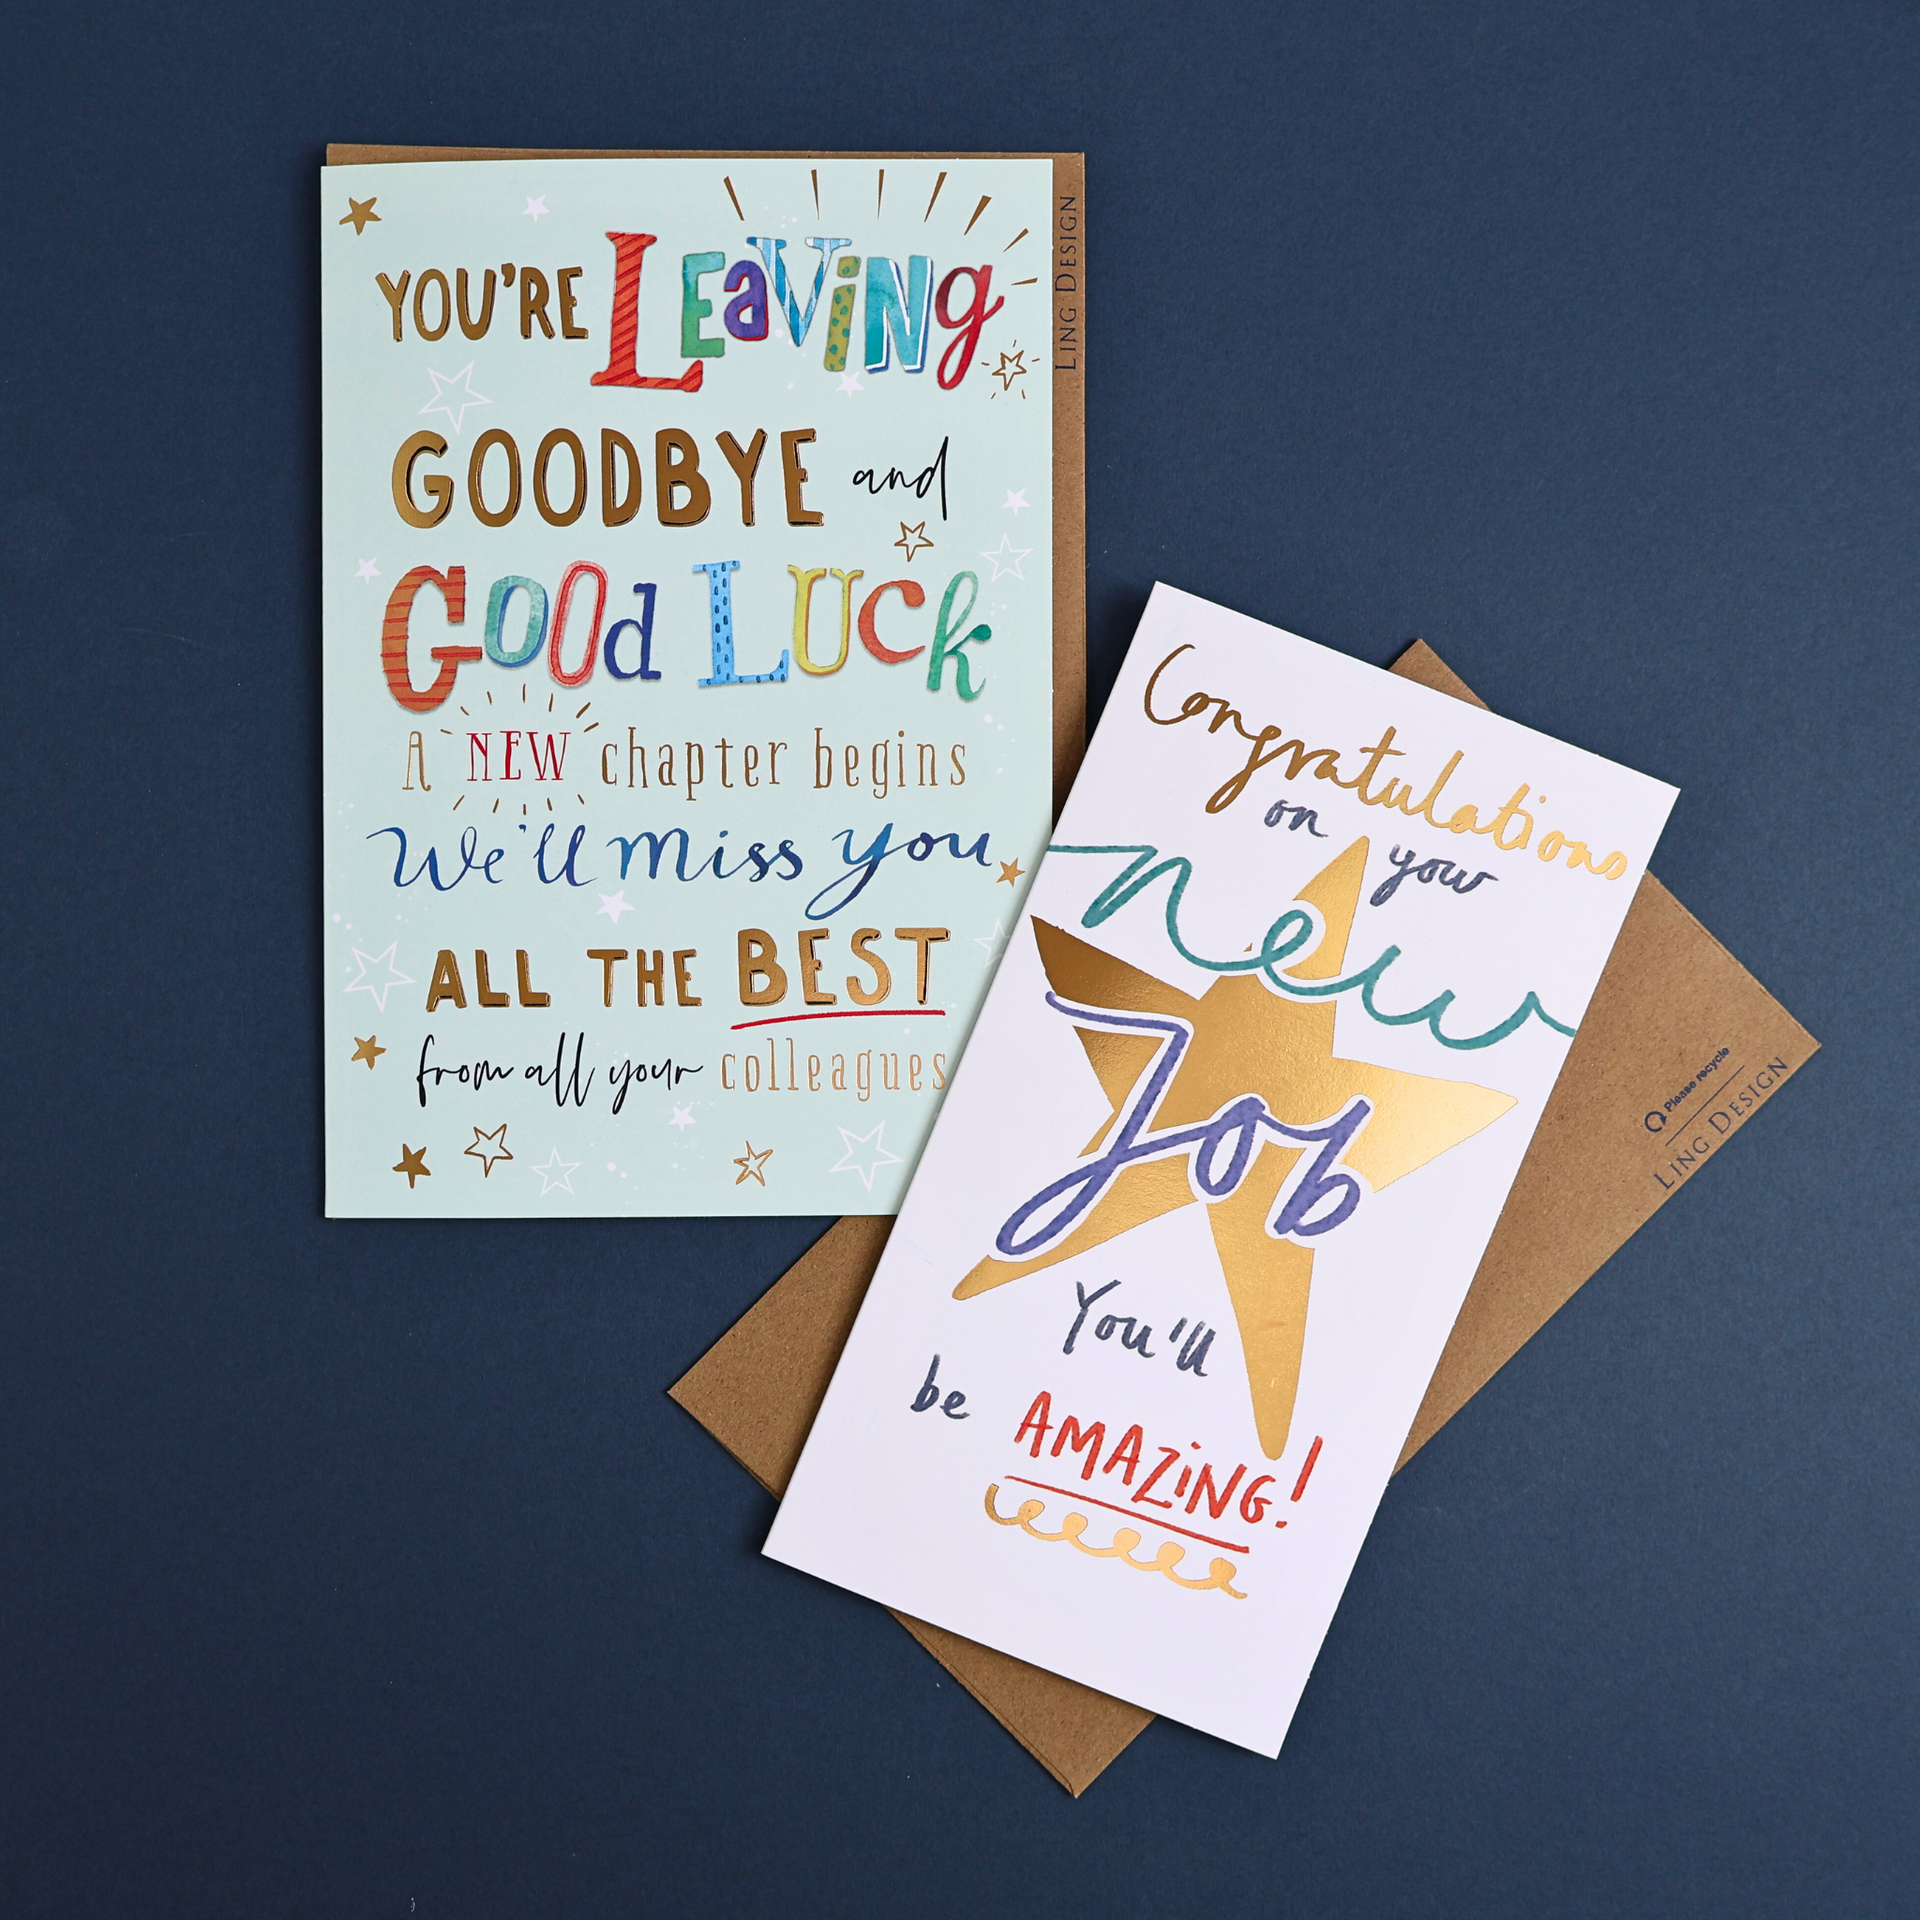 YOU'RE LEaViNg
GOODBYE and
GOOd LUCk
A NEW chapter begins
We'll miss you
ALL THE BEST
from all your colleagues
LING DESIGN
Congratulations
on your
new
Job
You'll
be AMAZiNG!
Please recycle
LING DESIGN